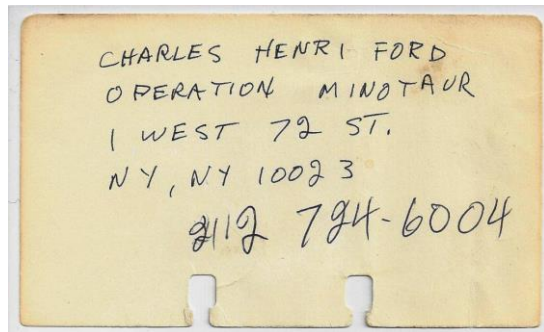 CHARLES HENRI FORD
OPERATION MINOTAUR
1 WEST 72 ST.
NY, NY 10023
212 724-6004